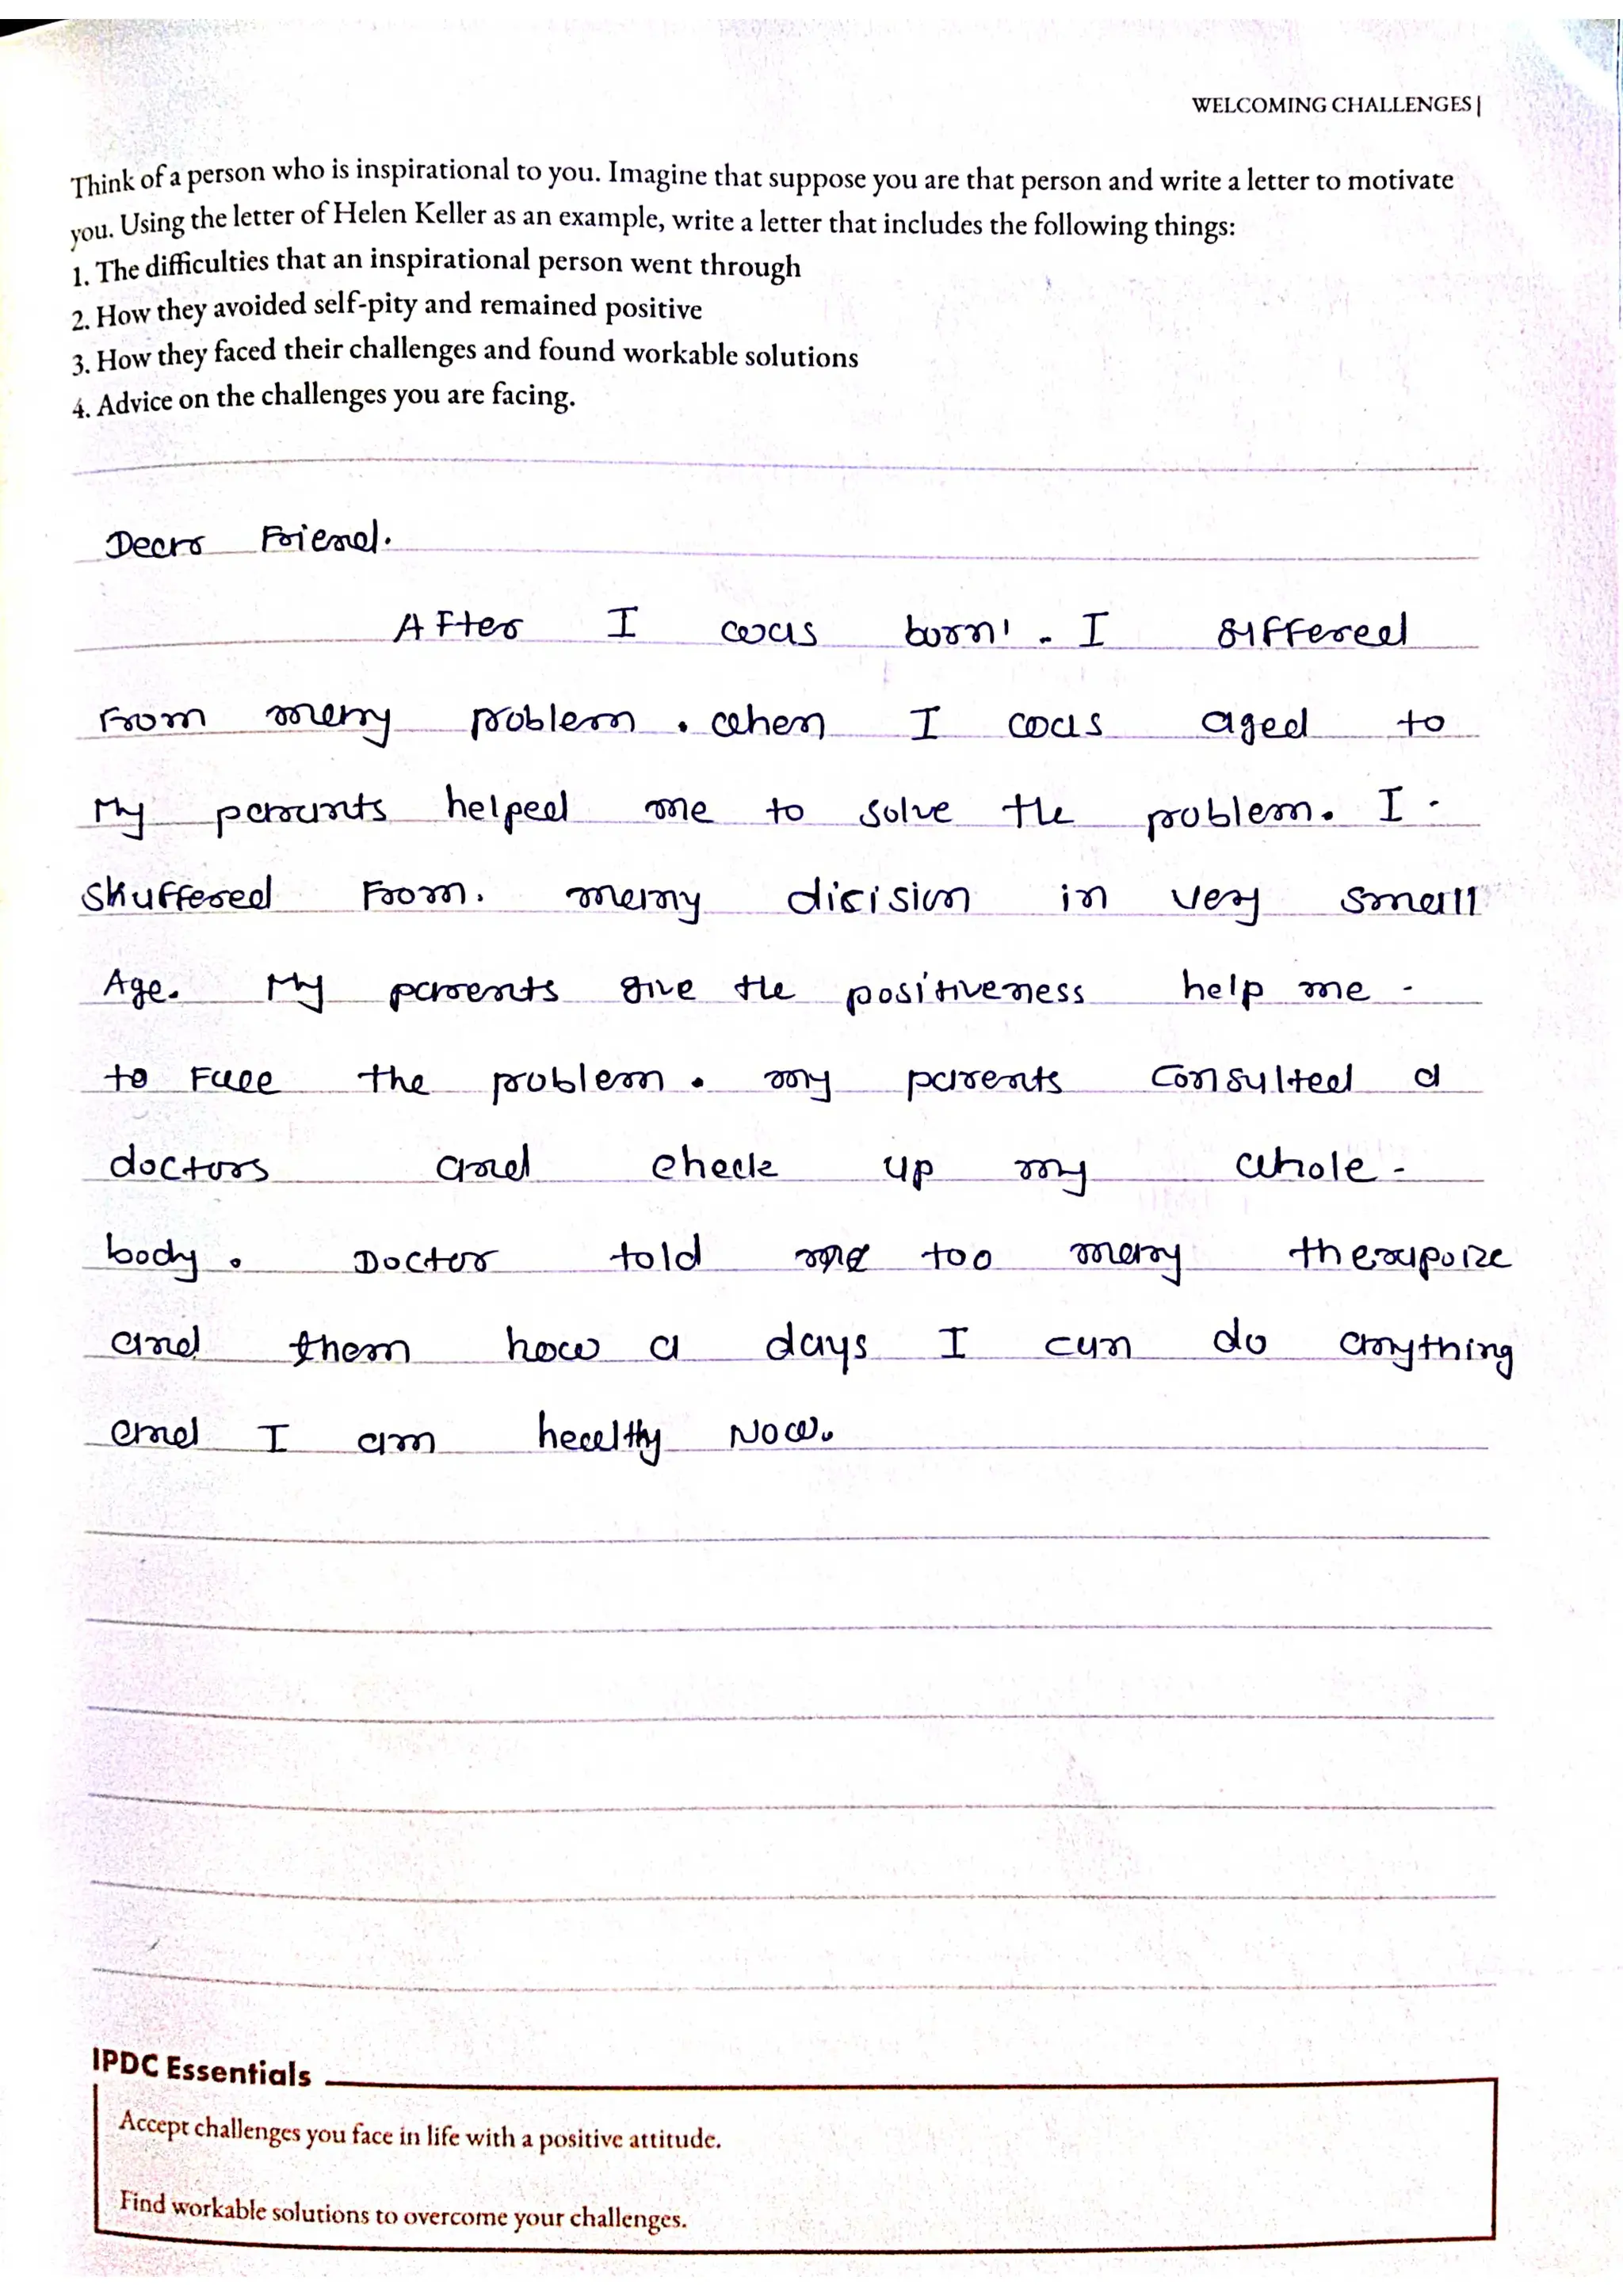 WELCOMING CHALLENGES |
Think of a person who is inspirational to you. Imagine that suppose you are that person and write a letter to motivate
you. Using the letter of Helen Keller as an example, write a letter that includes the following things:
1. The difficulties that an inspirational person went through
2. How they avoided self-pity and remained positive
3. How they faced their challenges and found workable solutions
4. Advice on the challenges you are facing.
Dear Friend.
After I was born'. I siffered
From meny problem. when I was aged to
My parunts helped me to solve the problem. I.
Skuffered From. meny dicision in very small
Age. My parents give the positiveness help me -
to Face the problem. my parents consulted a
doctors and check up my whole -
body. Doctor told me too many
and them how a days I can do anything
and I am healthy Now.
IPDC Essentials
Accept challenges you face in life with a positive attitude.
Find workable solutions to overcome your challenges.